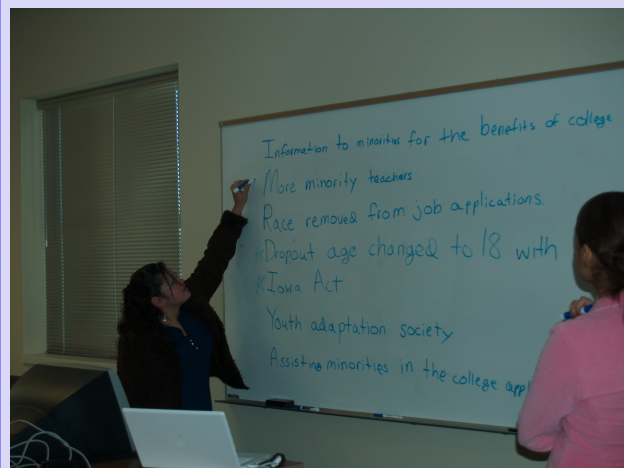 Information to minorities for the benefits of college
More minority teachers
Race removed from job applications.
Dropout age changed to 18 with
Iowa Act
Youth adaptation society
Assisting minorities in the college